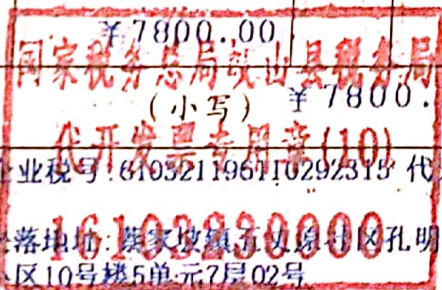 ¥7800.00
国家税务总局岐山县税务局
(小写) ¥7800.
代开发票专用章(10)
企业税号:610321196110292315 代
16103230000
落地址:蔡家坡镇五丈原社区孔明
区10号楼5单元7层02号